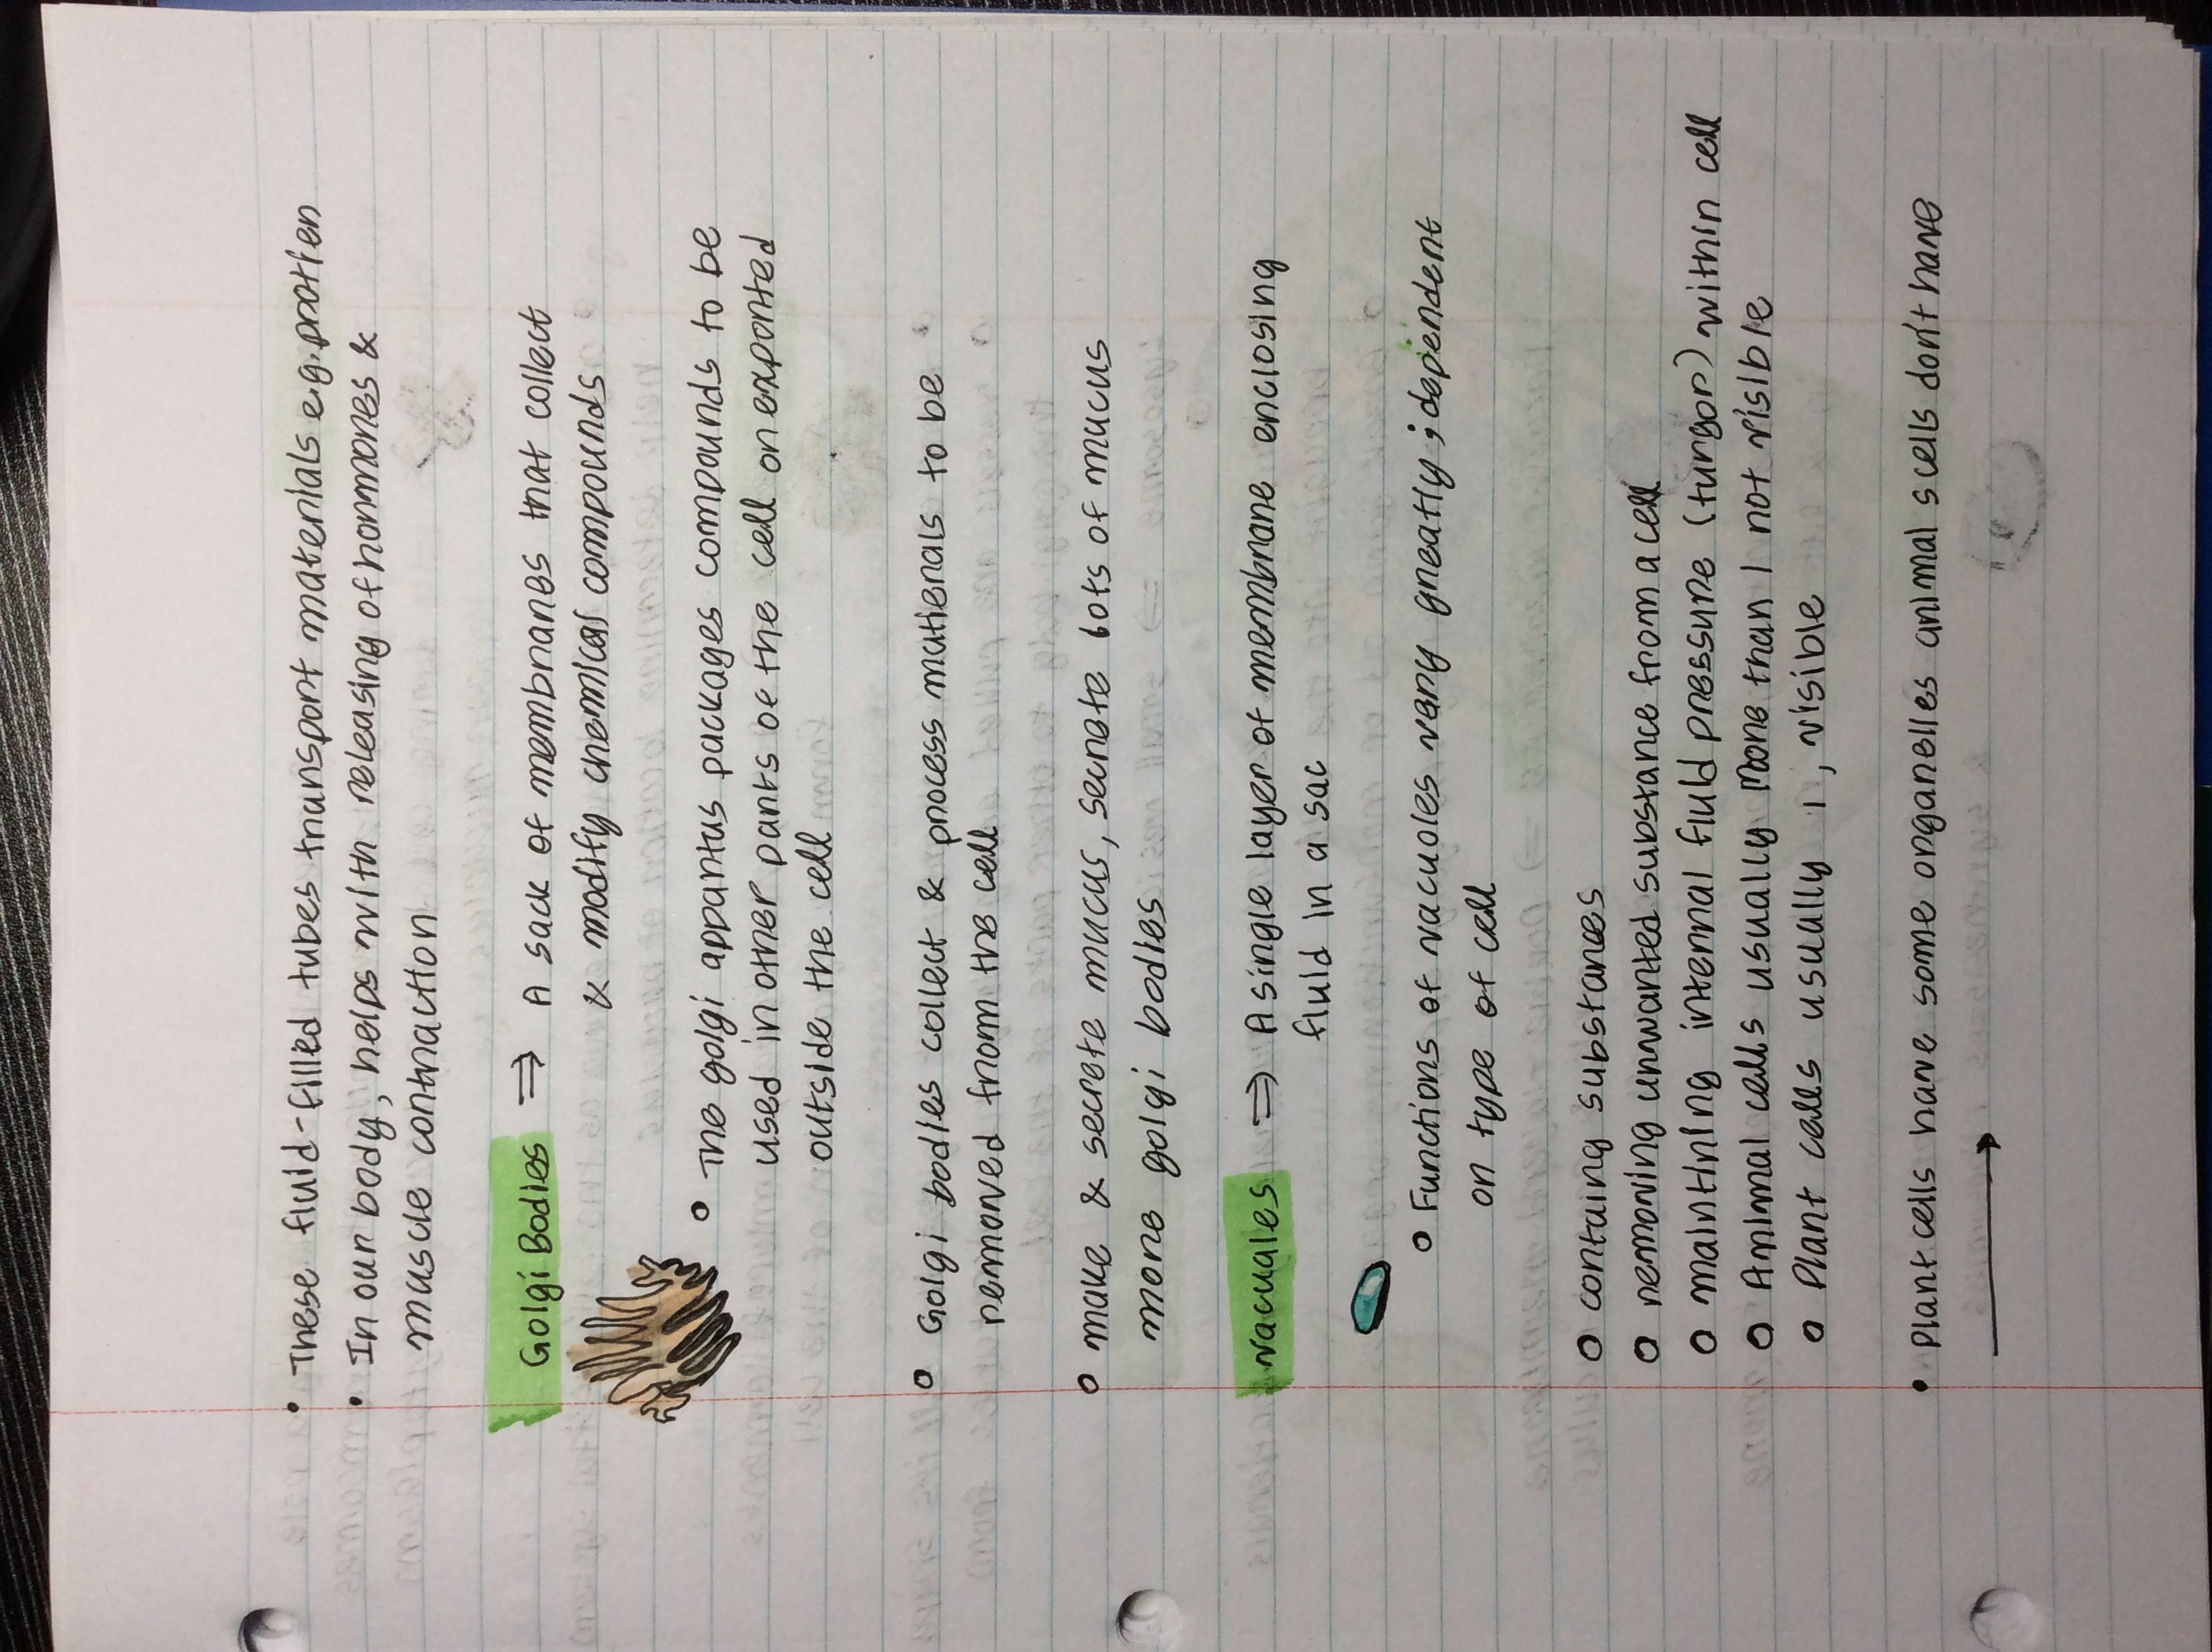 • These fluid-filled tubes transport materials e.g. protien
• In our body, helps with releasing of hormones &
muscle contraction
Golgi Bodies ⇒ A sack of membranes that collect
& modify chemical compounds
• The golgi appartus packages compounds to be
used in other parts of the cell or exported
outside the cell
• Golgi bodies collect & process matierals to be
removed from the cell
• make & secrete mucus, secrete lots of mucus
more golgi bodies
Vacuales ⇒ A single layer of membrane enclosing
fluid in a sac
• Functions of vacuoles vary greatly; dependent
on type of cell
• containg substances
• removing unwanted substance from a cell
• maintining internal fluid pressure (turgor) within cell
• Animal cells usually more than 1 not visible
• Plant cells usually 1, visible
• Plant cells have some organelles animal cells don't have
→